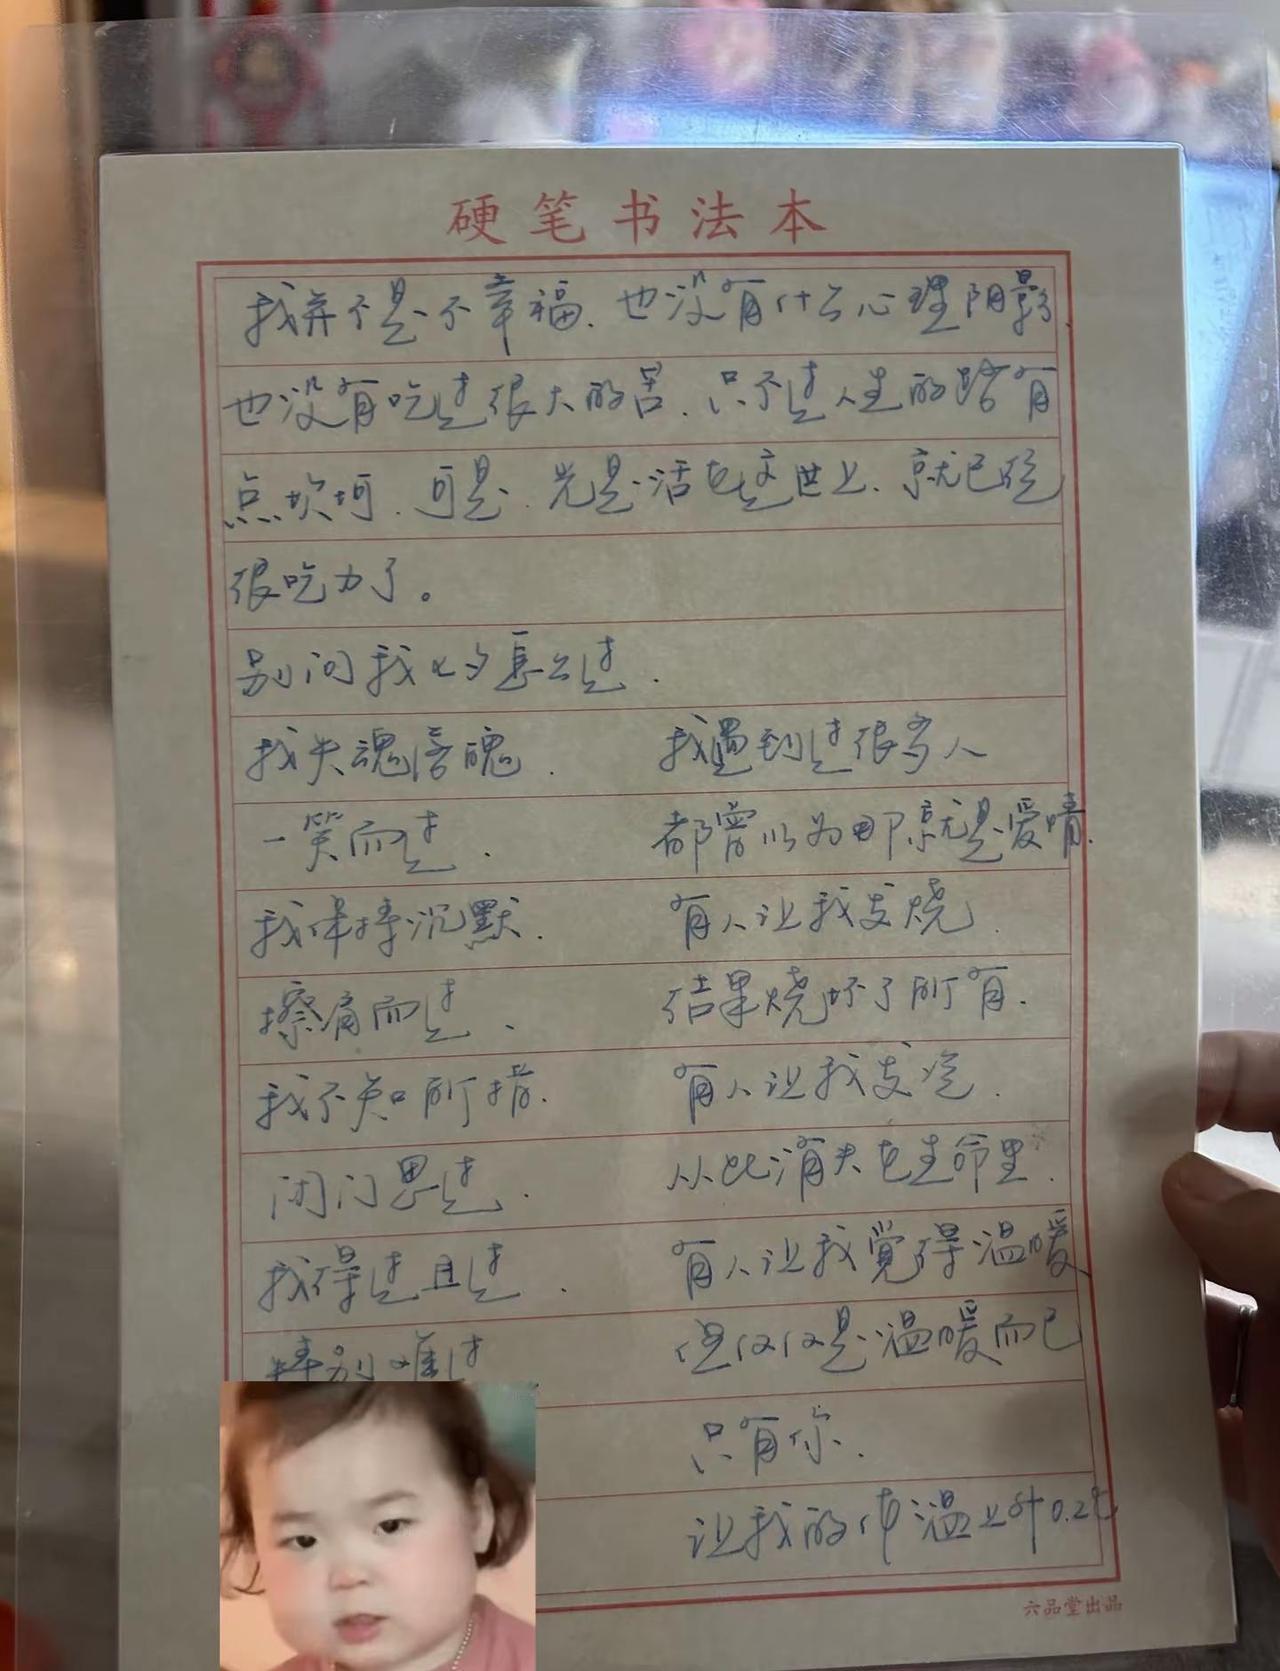 硬笔书法本
我并不是不幸福.也没有什么心理阴影.
也没有吃过很大的苦.只不过人生的路有
点坎坷.可是.光是活在这世上.就已经
很吃力了。
别问我怎么过.
我失魂落魄.
一笑而过.
我保持沉默.
擦肩而过.
我不知所措.
闭门思过.
我得过且过.
特别难过
我遇到过很多人
都曾以为那就是爱情.
有人让我发烧.
结果烧坏了所有.
有人让我发冷.
从此消失在生命里.
有人让我觉得温暖
但仅仅是温暖而已
只有你.
让我的体温上升0.2℃
六品堂出品